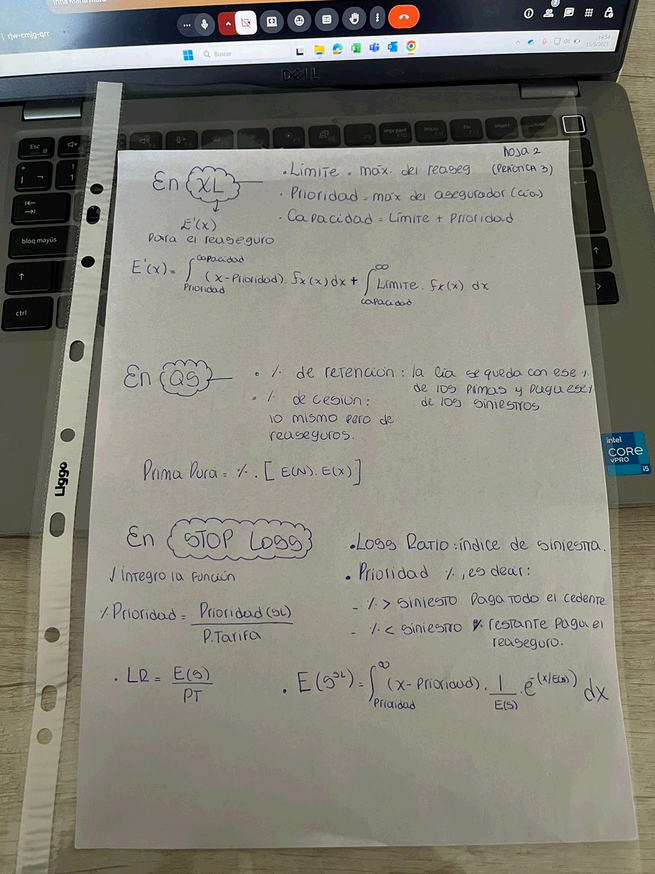 rjw-cmjg-qrr
Buscar
19:54
DELL
Esc
bloq mayús
ctrl
impr pant
inicio
fin
insert
Liggo
intel
CORE
vPRO
i5
hoja 2
(PRÁCTICA 3)
En XL
• Límite = máx. del reaseg
• Prioridad = máx del asegurador (cía)
• Capacidad = Límite + Prioridad
E'(x)
Para el reaseguro
E'(x) = ∫ Prioridad Capacidad (x-Prioridad). fx(x) dx + ∫ capacidad ∞ Límite. fx(x) dx
En QS
• % de retención: la cía se queda con ese %
de las primas y paga ese %
de los siniestros
• % de cesión:
lo mismo pero de
reaseguros.
Prima Pura = %. [E(N). E(X)]
En STOP LOSS
• Loss Ratio: índice de siniestra.
√ integro la función
• Prioridad %, es decir:
- % > siniesto Paga Todo el cedente
- % < siniestro restante Paga el
reaseguro.
% Prioridad = Prioridad (SL) / P. Tarifa
• LR = E(S) / PT
• E(S^SL) = ∫ Prioridad ∞ (x-Prioridad). 1/E(S) . e^-(x/E(S)) dx